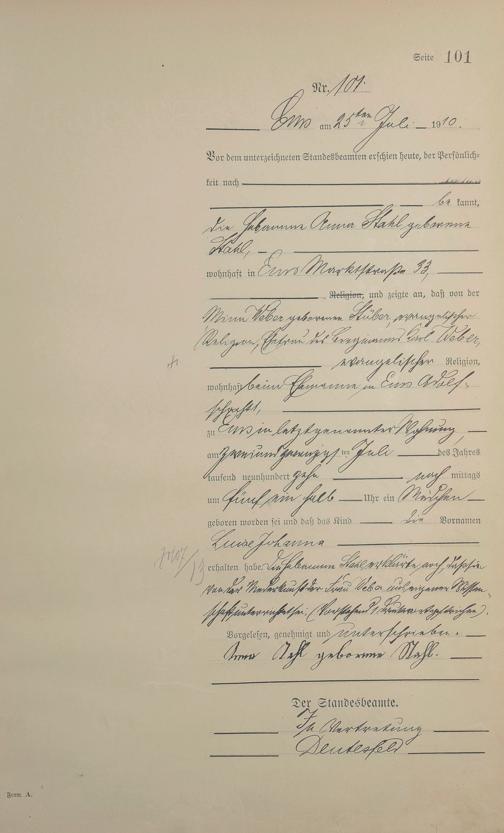 Seite 101
Nr. 101.
Ems am 25ten Juli 1910.
Vor dem unterzeichneten Standesbeamten erschien heute, der Persönlich-
keit nach
be kannt,
die Hebamme Anna Stahl geborene
Stahl,
wohnhaft in Ems Marktstraße 33,
Religion, und zeigte an, daß von der
Weber geborenen Stüber, evangelischer
Religion, Ehefrau des Bergmanns Carl Weber,
evangelischer Religion,
wohnhaft beim Ehemanne in Ems Adolf-
schacht,
zu Ems in letztgenannter Wohnung,
am zweiundzwanzigsten Juli des Jahres
tausend neunhundert zehn nach mittags
um fünf ein halb Uhr ein Mädchen
geboren worden sei und daß das Kind die Vornamen
Luise Johanna
erhalten habe. Die Hebamme Stahl erklärte, auch daß sie
von der Niederkunft der Frau Weber aus eigener Wissen-
schaft unterrichtet sei. (Vorstehend
Vorgelesen, genehmigt und unterschrieben.
Anna Stahl geborene Stahl.
Der Standesbeamte.
In Vertretung
Form. A.